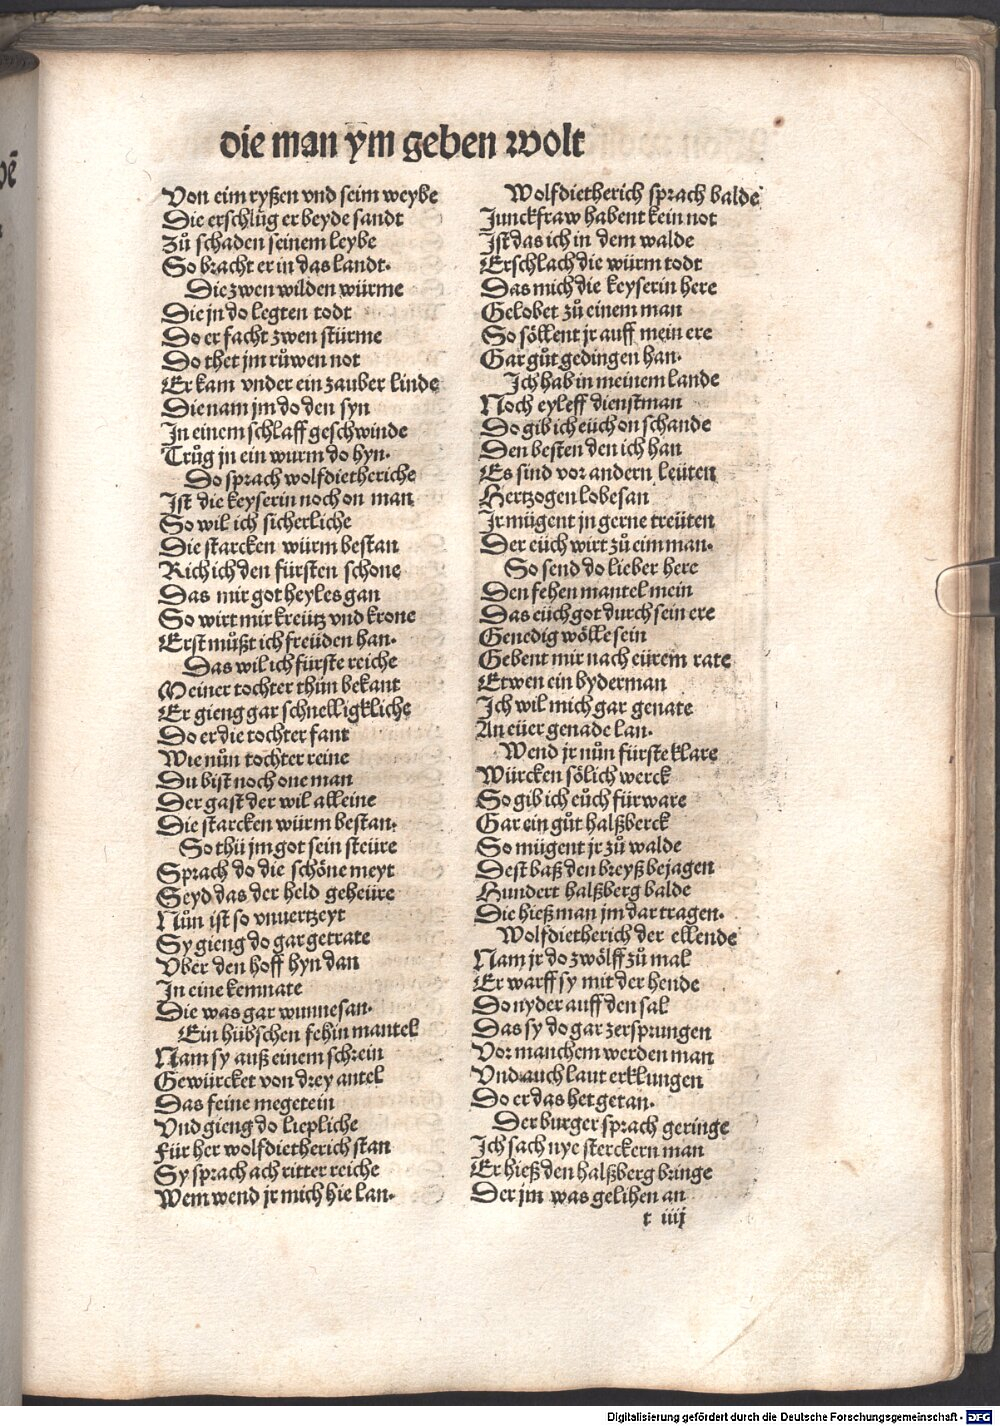 die man ym geben wolt
Von eim ryßen vnd seim weybe
Die erschlůg er beyde sandt
Zů schaden seinem leybe
So bracht er in das landt.
Die zwen wilden würme
Die jn do legten todt
Do er facht zwen stürme
Do thet jm růwen not
Er kam vnder ein zauber linde
Die nam jm do den syn
In einem schlaff geschwinde
Trůg jn ein wurm do hyn.
Do sprach wolfdietheriche
Ist die keyserin noch on man
So wil ich sicherliche
Die starcken würm bestan
Rich ich den fürsten schone
Das mir got heyles gan
So wirt mir kreütz vnd krone
Erst můßt ich freüden han.
Das wil ich fürste reiche
Meiner tochter thůn bekant
Er gieng gar schnelligkliche
Do er die tochter fant
Wie nůn tochter reine
Du bist noch one man
Der gast der wil alleine
Die starcken würm bestan.
So thü jm got sein steüre
Sprach do die schöne meyt
Seyd das der held geheüre
Nůn ist so vnuertzeyt
Sy gieng do gar getrate
Vber den hoff hyn dan
In eine kemnate
Die was gar wunnesan.
Ein hübschen fehin mantel
Nam sy auß einem schrein
Gewürcket von drey antel
Das feine megetein
Vnd gieng do liepliche
Für her wolfdietherich stan
Sy sprach ach ritter reiche
Wem wend jr mich hie lan.
Wolfdietherich sprach balde
Junckfraw habent kein not
Ist das ich in dem walde
Erschlach die würm todt
Das mich die keyserin here
Gelobet zů einem man
So söllent jr auff mein ere
Gar gůt gedingen han.
Ich hab in meinem lande
Noch eyleff dienstman
Do gib ich eüch on schande
Den besten den ich han
Es sind vor andern leüten
Hertzogen lobesan
Jr mügent jn gerne treüten
Der eüch wirt zů eim man.
So send do lieber here
Den fehen mantel mein
Das eüch got durch sein ere
Genedig wölle sein
Gebent mir nach eürem rate
Etwen ein byderman
Ich wil mich gar genate
An eüer genade lan.
Wend jr nůn fürste klare
Würcken sölich werck
So gib ich eüch für ware
Gar ein gůt halßberck
So mügent jr zů walde
Dest baß den breyß bejagen
Hundert halßberg balde
Die hieß man jm dar tragen.
Wolfdietherich der ellende
Nam jr do zwölff zů mal
Er warff sy mit der hende
Do nyder auff den sal
Das sy do gar zersprungen
Vor manchem werden man
Vnd auch laut erklungen
Do er das het getan.
Der burger sprach geringe
Ich sach nye sterckern man
Er hieß den halßberg bringe
Der jm was gelihen an
t iiij
Digitalisierung gefördert durch die Deutsche Forschungsgemeinschaft - DFG